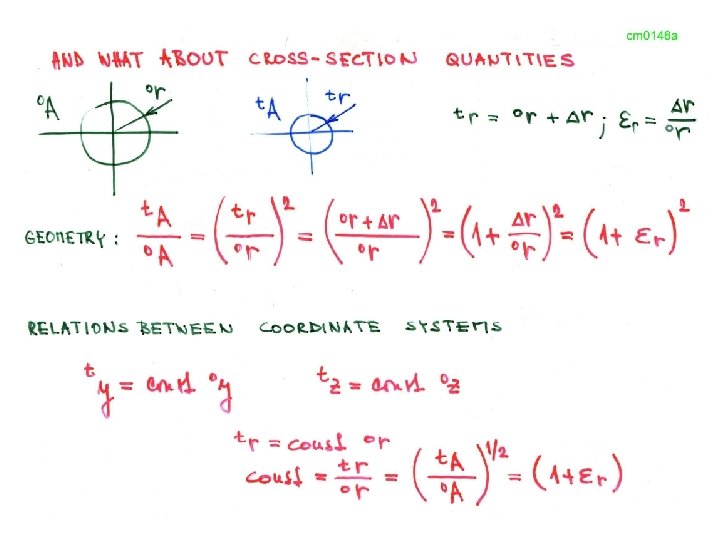 cm0148a
AND WHAT ABOUT CROSS-SECTION QUANTITIES
⁰A ⁰r ᵗA ᵗr ᵗr = ⁰r + Δr ; εᵣ = Δr/⁰r
GEOMETRY: ᵗA/⁰A = (ᵗr/⁰r)² = ((⁰r + Δr)/⁰r)² = (1 + Δr/⁰r)² = (1 + εᵣ)²
RELATIONS BETWEEN COORDINATE SYSTEMS
ᵗy = const ⁰y ᵗz = const ⁰z
ᵗr = const ⁰r
const = ᵗr/⁰r = (ᵗA/⁰A)^1/2 = (1 + εᵣ)